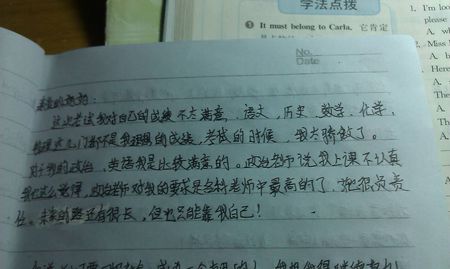 学法点拨
1. I'm loo
❶ It must belong to Carla. 它肯定
please
A. w
Miss
No.
Date
A. h
Here
A.
The
A.
The
A.
亲爱的妈妈:
这次考试我对自己的成绩不太满意, 语文, 历史, 数学, 化学,
物理这几门都不是我理想的成绩, 考试的时候, 我太骄傲了。
对于我的政治, 英语我是比较满意的。政治老师说我上课不认真
我也这么觉得, 政治老师对我的要求是各科老师中最高的了, 她很负责
任。未来的路还有很长, 但也只能靠我自己!